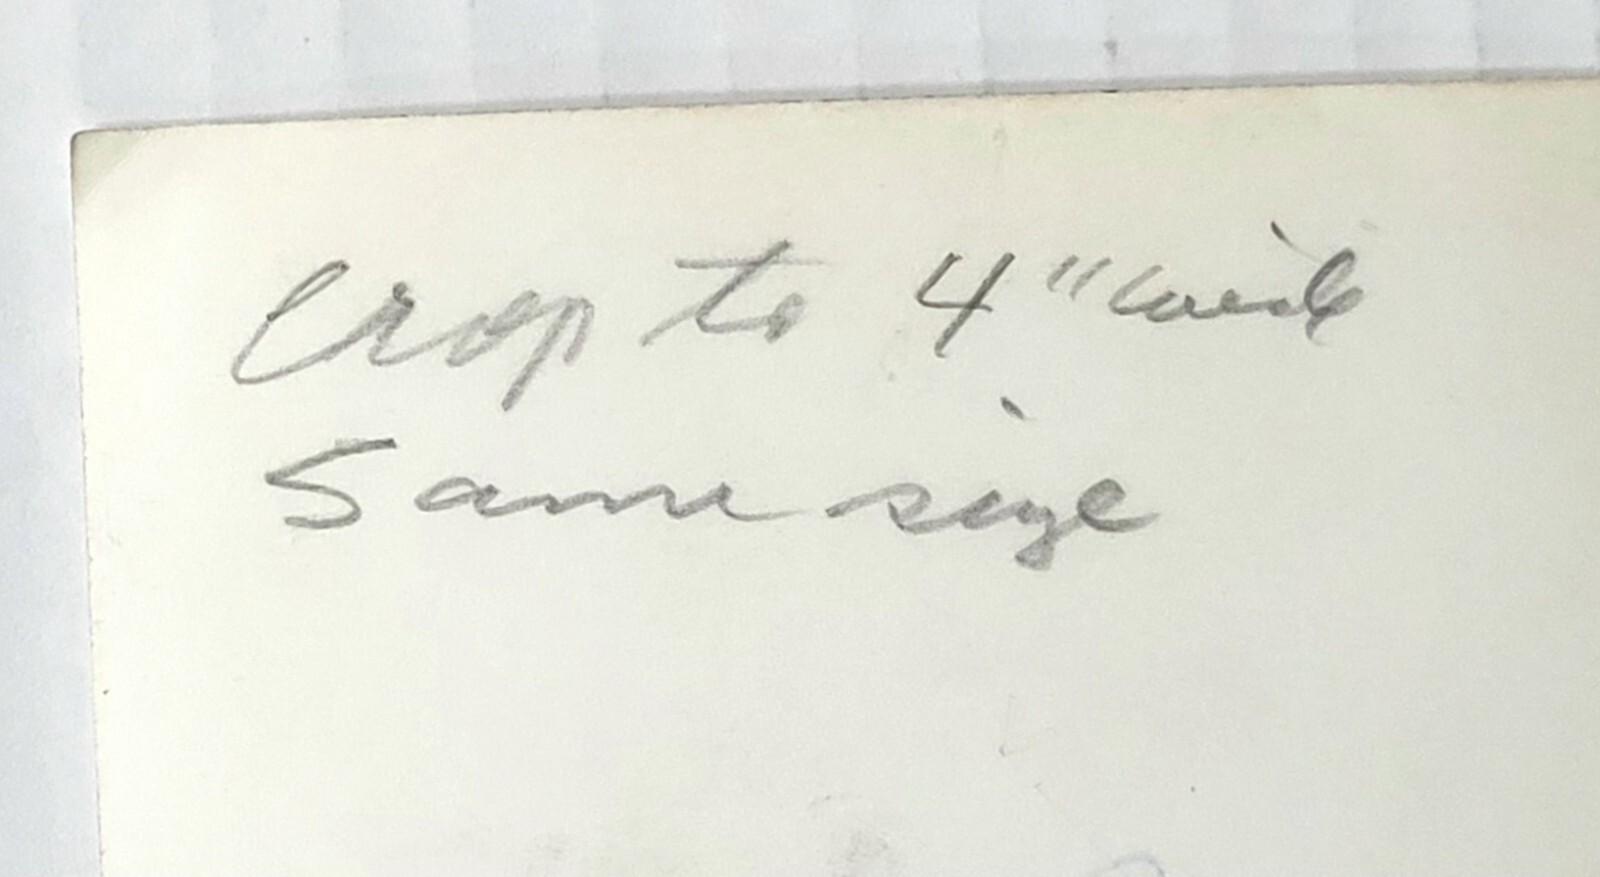 Crop to 4" wide
Same size